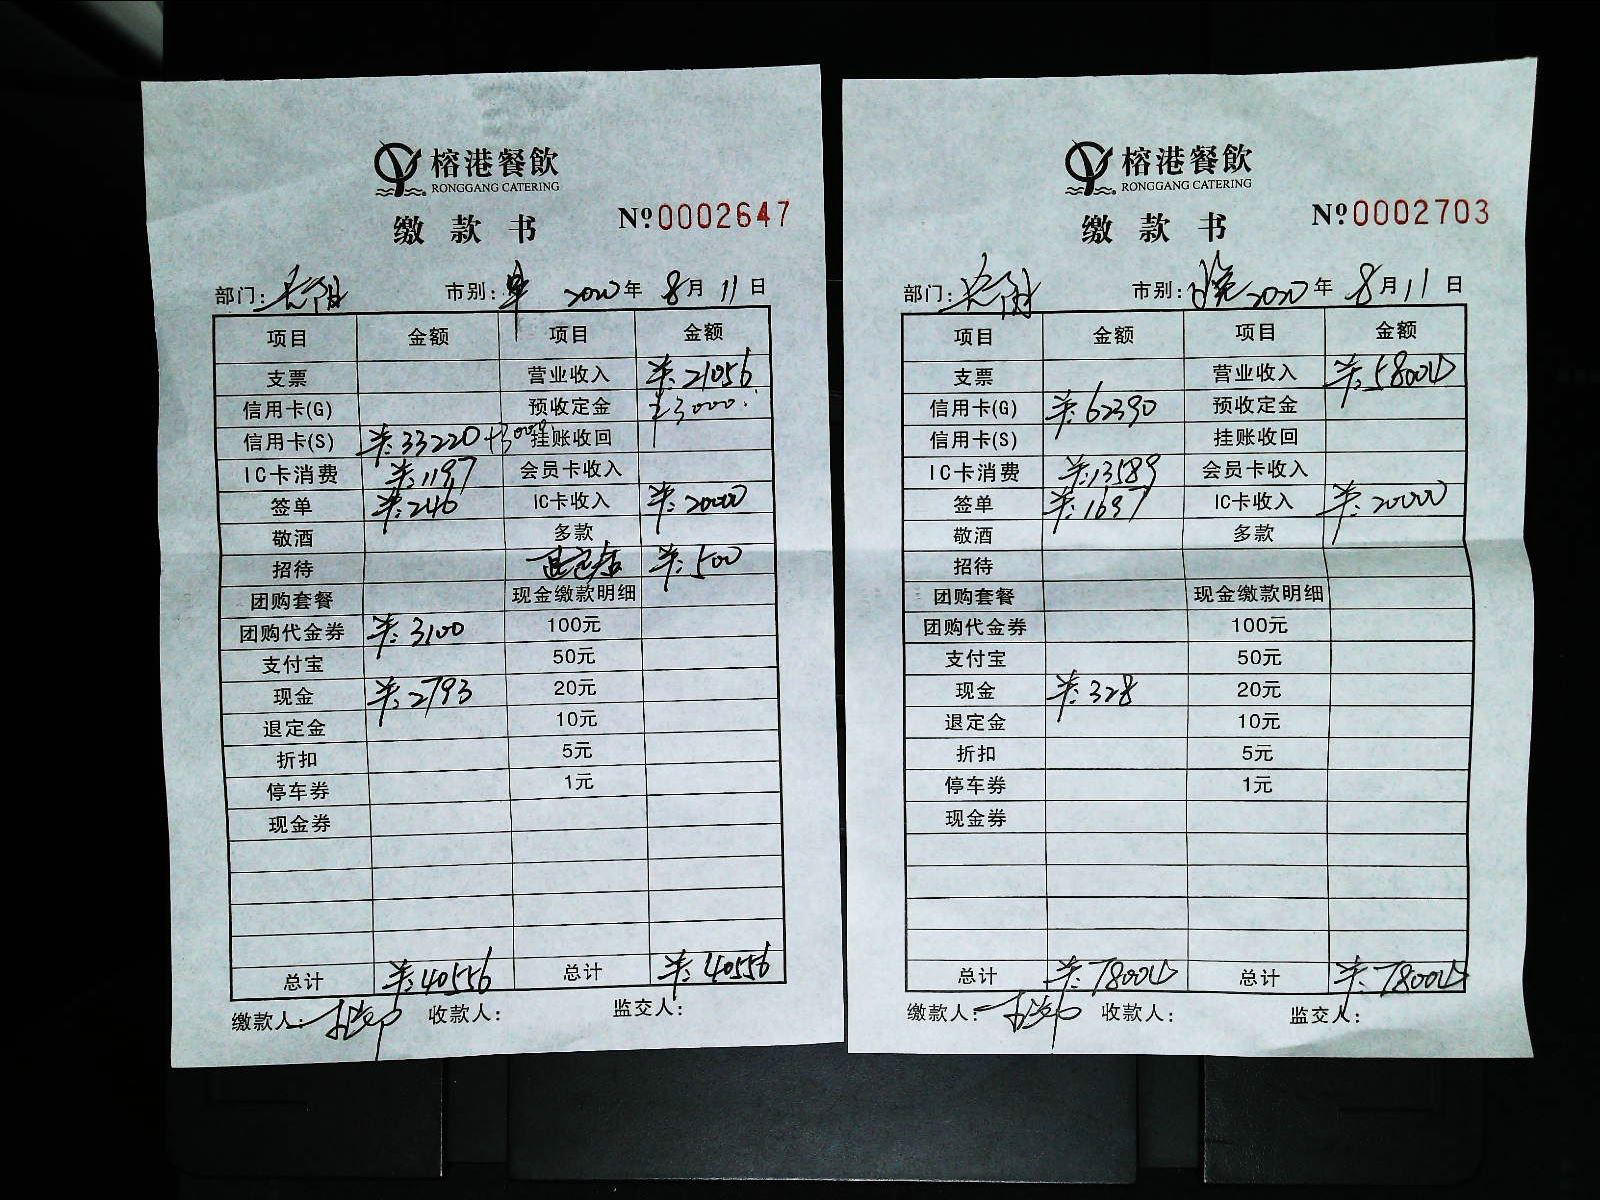 榕港餐飲
RONGGANG CATERING
缴款书
Nº0002647
部门: 市别: 早 2020年 8月 11日
项目 金额 项目 金额
支票 营业收入 ¥:21056
信用卡(G) 预收定金 ¥3000.
信用卡(S) ¥:33220+3000 挂账收回
IC卡消费 ¥:1197 会员卡收入
签单 ¥:246 IC卡收入 ¥:20000
敬酒 多款
招待 ¥:500
团购套餐 现金缴款明细
团购代金券 ¥:3100 100元
支付宝 50元
现金 ¥:2793 20元
退定金 10元
折扣 5元
停车券 1元
现金券
总计 ¥:40556 总计 ¥:40556
缴款人: 收款人: 监交人:
榕港餐飲
RONGGANG CATERING
缴款书
Nº0002703
部门: 市别: 晚 2020年 8月 11日
项目 金额 项目 金额
支票 营业收入 ¥:58004
信用卡(G) ¥:62390 预收定金
信用卡(S) 挂账收回
IC卡消费 ¥:13589 会员卡收入
签单 ¥:1697 IC卡收入 ¥:20000
敬酒 多款
招待
团购套餐 现金缴款明细
团购代金券 100元
支付宝 50元
现金 ¥:328 20元
退定金 10元
折扣 5元
停车券 1元
现金券
总计 ¥:78004 总计 ¥:78004
缴款人: 收款人: 监交人: